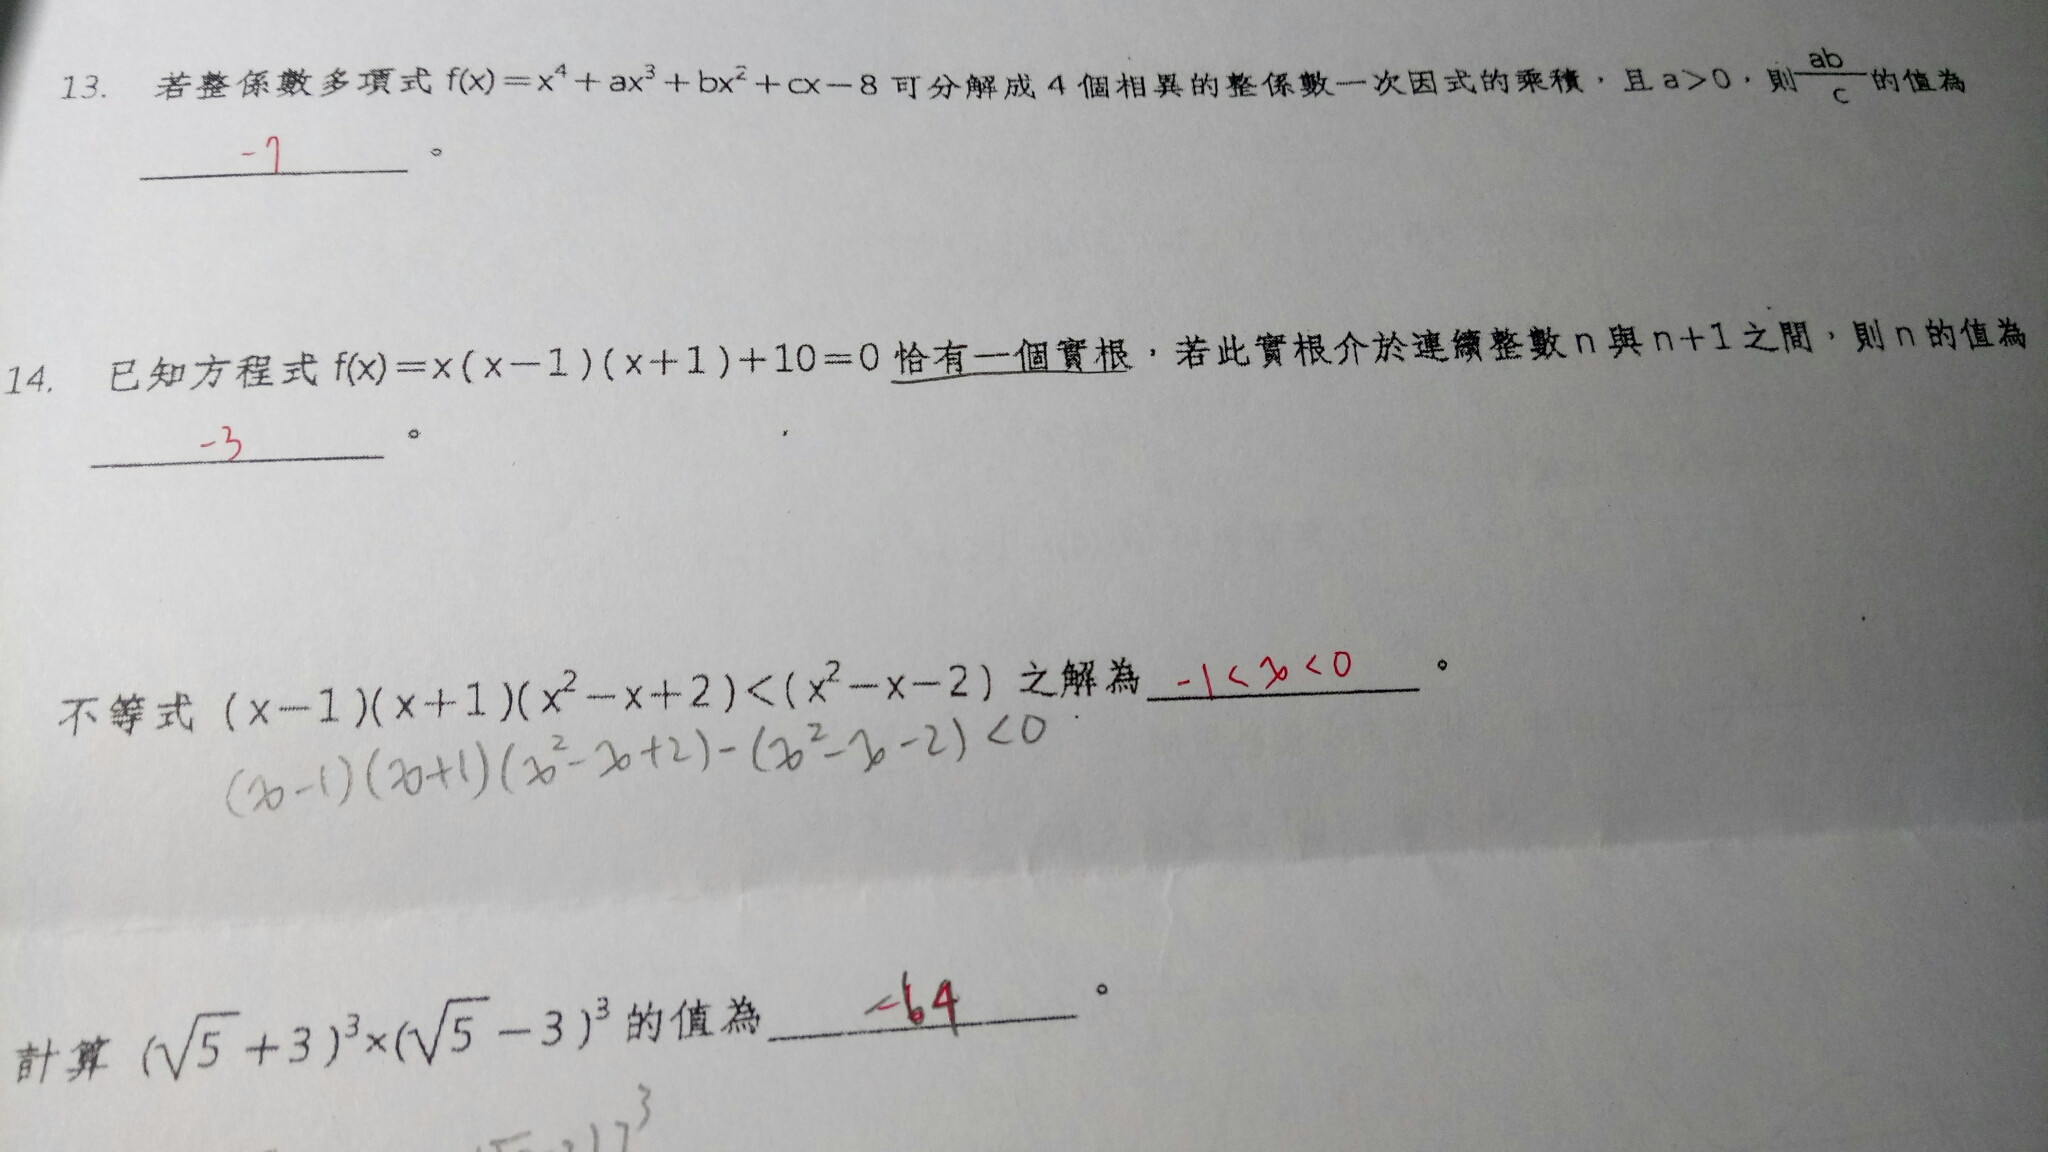 13. 若整係數多項式 f(x)=x⁴+ax³+bx²+cx−8 可分解成 4 個相異的整係數一次因式的乘積，且 a>0，則 ab/c 的值為
-7 。
14. 已知方程式 f(x)=x(x−1)(x+1)+10=0 恰有一個實根，若此實根介於連續整數 n 與 n+1 之間，則 n 的值為
-3 。
不等式 (x−1)(x+1)(x²−x+2)<(x²−x−2) 之解為 -1<x<0 。
(x-1)(x+1)(x²-x+2)-(x²-x-2)<0
計算 (√5+3)³×(√5−3)³ 的值為 -64 。